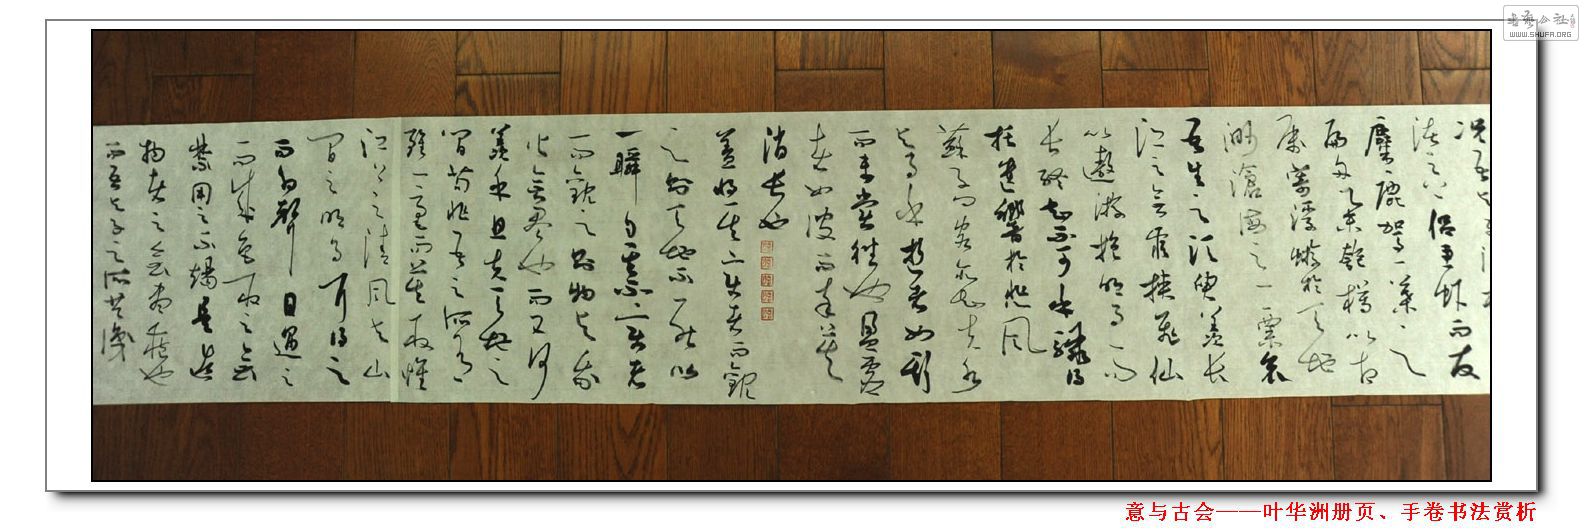 况吾与子渔
渚之上侣鱼虾而友
麋鹿驾一葉之
扁舟举匏樽以相
属寄蜉蝣於天地
渺滄海之一粟哀
吾生之须臾羡长
江之无穷挟飛仙
以遨游抱明月而
长终知不可乎骤得
托遗響於悲风
蘇子曰客亦知夫水
与月乎逝者如斯
而未嘗往也盈虚
者如彼而卒莫
消长也
盖将自其变者而觀
之则天地不能以
一瞬自其不变者
而觀之则物与我
皆无尽也而又何
羡乎且夫天地之
间苟非吾之所有
雖一毫而莫取惟
江上之清风与山
间之明月耳得之
而为聲目遇之
而成色取之无
禁用之不竭是造
物者之无尽藏也
而吾与子之所共
意与古会——叶华洲册页、手卷书法赏析
书艺公社
WWW.SHUFA.ORG